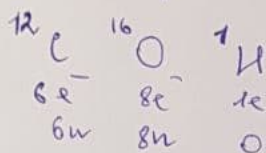 ¹²C ¹⁶O ¹H
6e⁻ 8e⁻ 1e
6n 8n 0